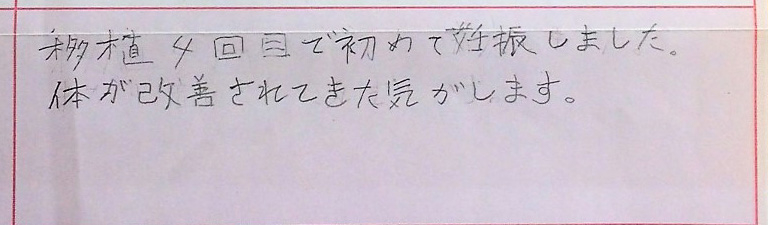 移植4回目で初めて妊娠しました。
体が改善されてきた気がします。